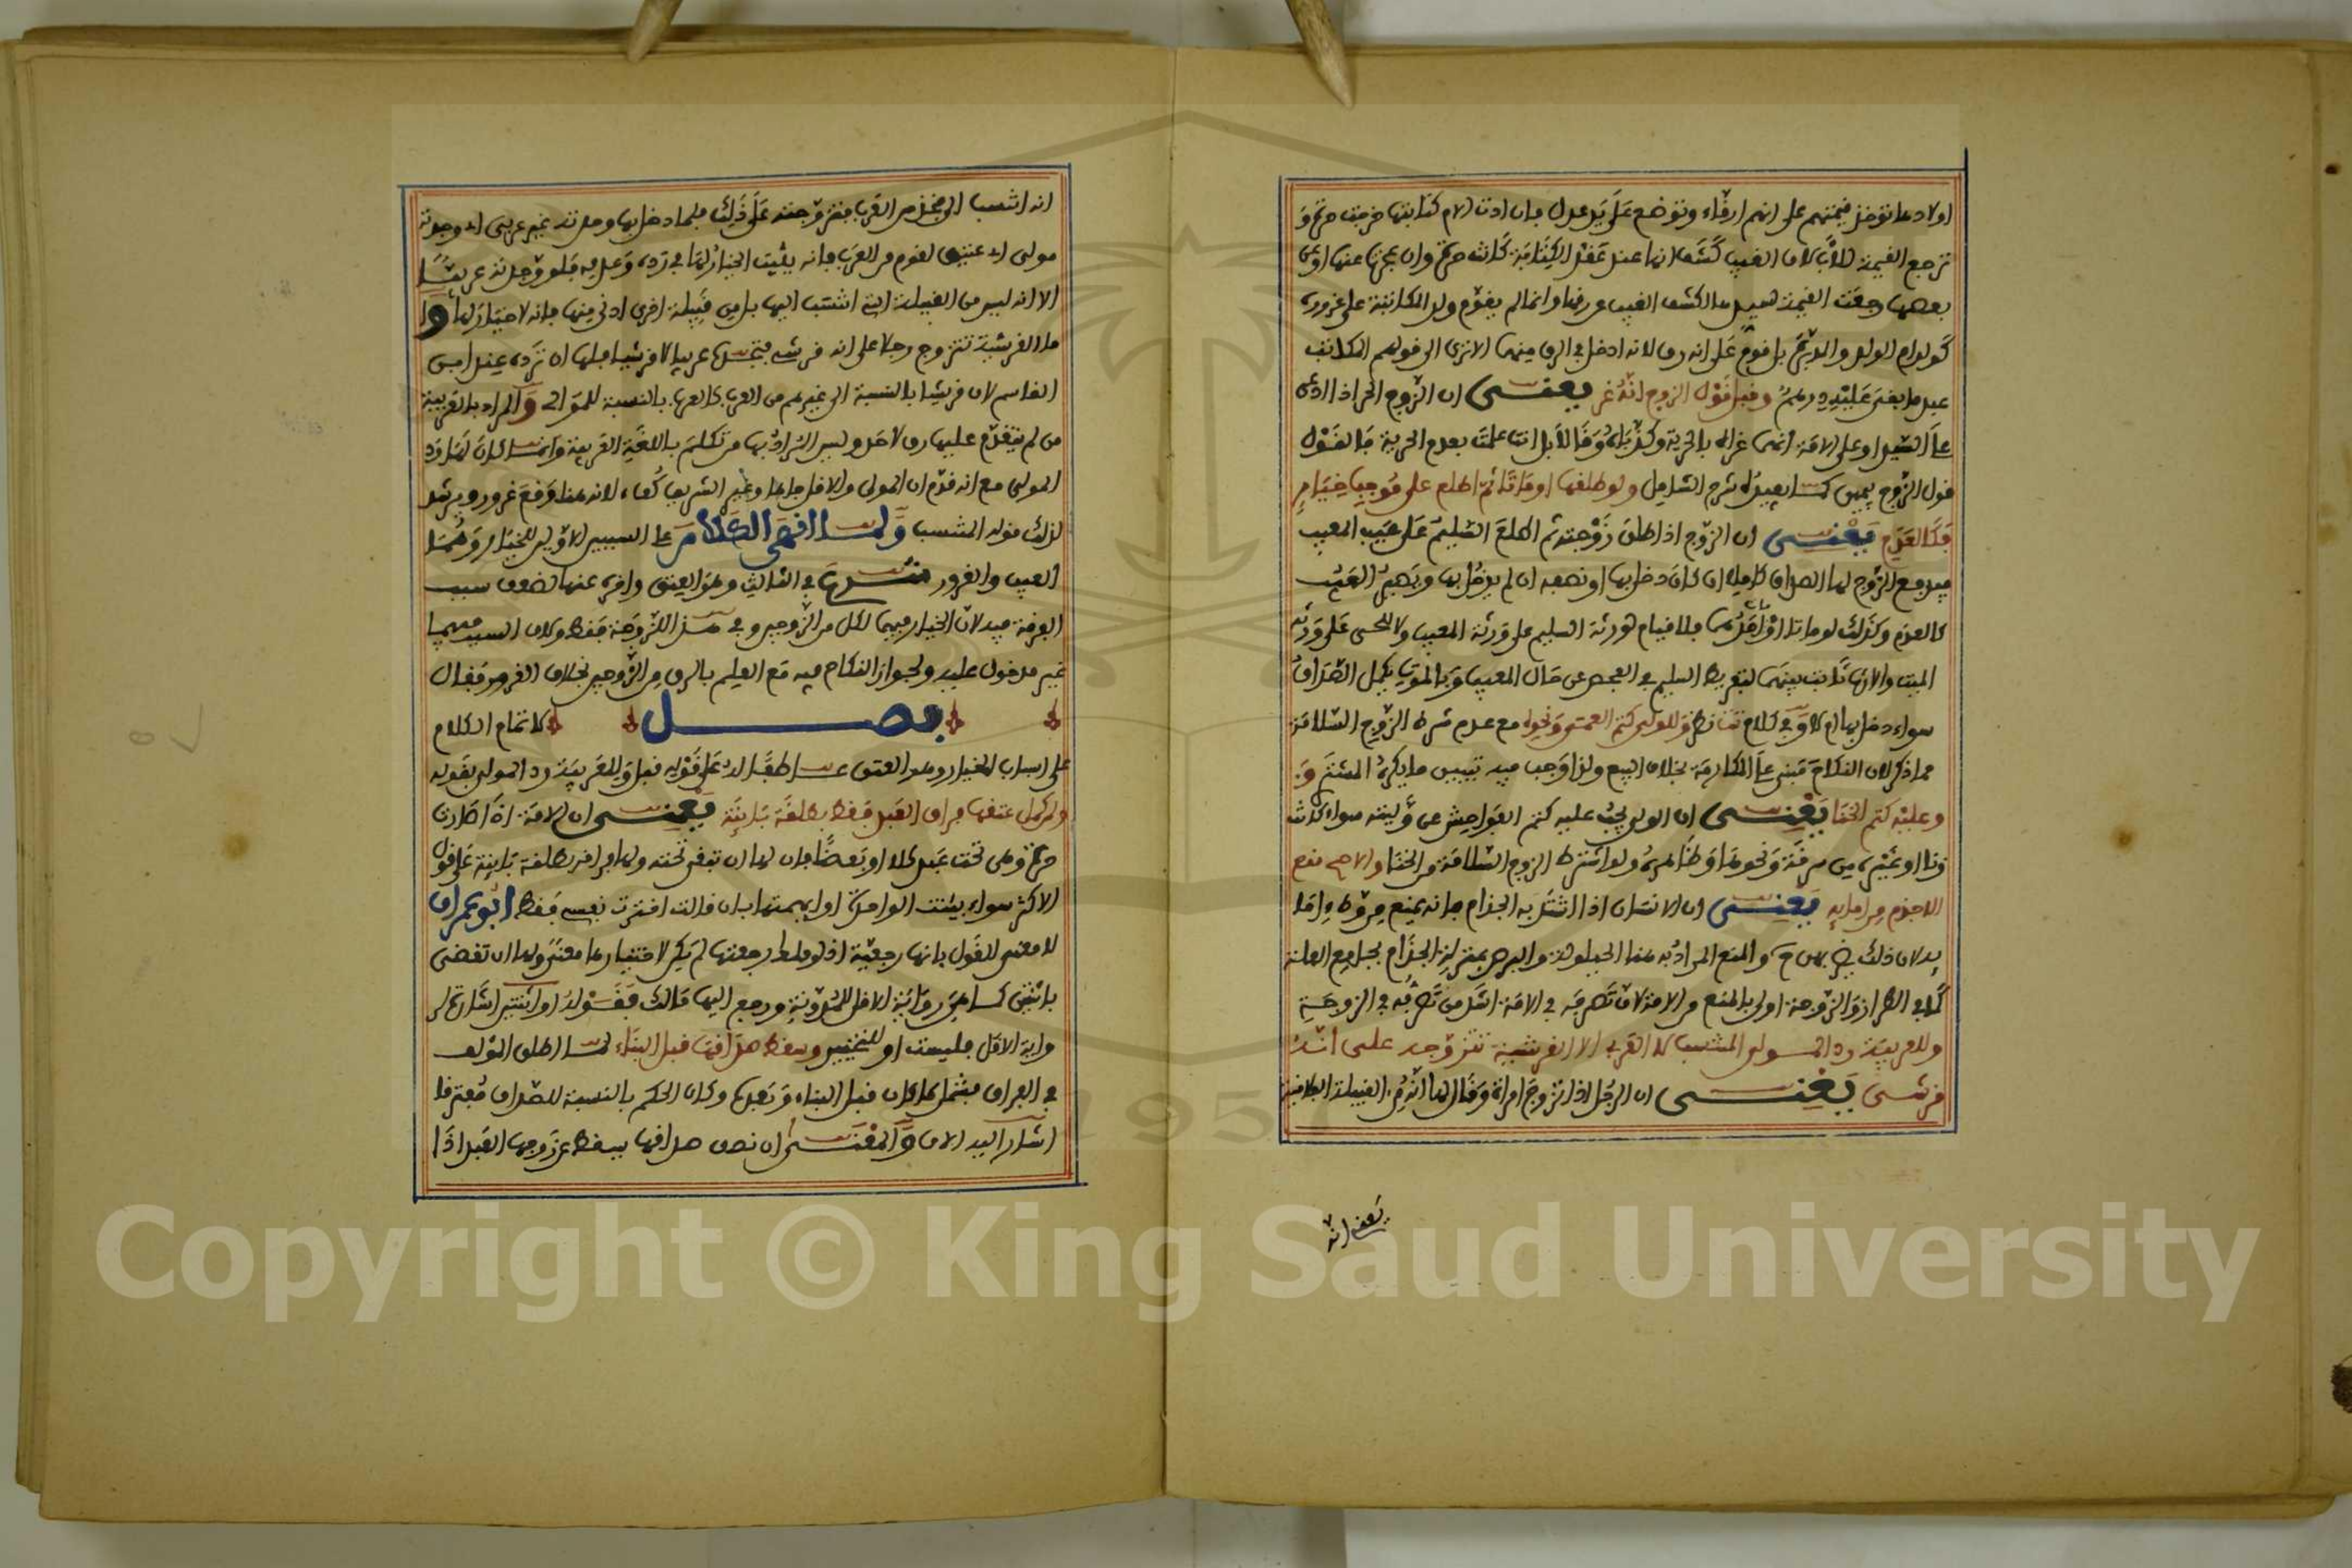 اولادها تؤخذ قيمتهم على انهم ارقاء وتوضع على يد عدل فان ادت الام كتابتها خرجت حرة و
ترجع القيمة للاب لان الغيب كشف انها عند عقد الكتابة كانت حرة وان عجزت عنها او عن
بعضها رجعت القيمة لسيدها لكشف الغيب عن رقها وانما لم يقوم ولد المكاتبة على غرره
كولد ام الولد والمدبرة بل قوم على انه رق لانه ادخل في الرق منهما الا ترى الى قولهم المكاتب
عبد ما بقي عليه درهم وقبل قول الزوج انه غر يعني ان الزوج الحر اذا ادعى
على السيد او على الامة انهما غراه بالحرية وكذباه وقالا بل انت علمت بعدم الحرية فالقول
قول الزوج بيمين كما يفيده شرح الشامل ولو طلقها او ماتا ثم اطلع على موجب خيار
فكالعدم يعني ان الزوج اذا طلق زوجته ثم اطلع السليم على عيب المعيب
فيدفع الزوج لها الصداق كاملا ان كان دخل بها او نصفه ان لم يدخل بها ويصير العيب
كالعدم وكذلك لو ماتا او احدهما فلا قيام لورثة السليم على ورثة المعيب ولا للحي على ورثة
الميت والارث ثابت بينهما لتفريط السليم في الفحص عن حال المعيب وبالموت يكمل الصداق
سواء دخل بها ام لا وفي كلام تت نظر وللولي كتم العمى ونحوه مع عدم شرط الزوج السلامة
مما ذكر لان النكاح مبني على المكارمة بخلاف البيع ولذا وجب فيه تبيين ما يكره المشتري
وعليه كتم الخنا يعني ان الولي يجب عليه كتم الفواحش عن وليته سواء كانت
زنا او غيره من سرقة ونحوها وظاهره ولو اشترط الزوج السلامة من الخنا والاصح منع
الاجذم من امايه يعني ان الانسان اذا اشتد به الجذام فانه يمنع من وطء اما
يه لان ذلك ضرر بهن والمنع المراد به هنا الحيلولة والبرص بمنزلة الجذام بجامع العلة
كما في الطراز والزوجة اولى بالمنع من الامة لان تصرفه في الامة اشد من تصرفه في الزوجة
وللعربية رد المولى المنتسب لا العربي الا القرشية تتزوجه على انه
قرشي يعني ان الرجل اذا تزوج امراة وقال لها انه من القبيلة الفلانية
يعني انه
انه انتسب الى فخذ من العرب فتزوجته على ذلك فلما دخل بها وجدته غير عربي اي وجدته
مولى اي عتيق لقوم من العرب فانه يثبت الخيار لها في رده وعدمه فلو وجدته عربيا
الا انه ليس من القبيلة التي انتسب اليها بل من قبيلة اخرى ادنى منها فانه لا خيار لها وا
ما القرشية تتزوج رجلا على انه قرشي فتجده عربيا لا قرشيا فلها ان ترده عند ابن
القاسم لان قريشا بالنسبة الى غيرهم من العرب كالعرب بالنسبة للموالي والمراد بالعربية
من لم يتقدم عليها رق لاحد وليس المراد بها من تكلم باللغة العربية وانما كان لها رد
المولى مع انه قدم ان المولى والاقل جاها وغير الشريف كفء لانه هنا وقع غرور ويرشد
لذلك قوله المنتسب ولما انهى الكلام على السببين الاولين للخيار وهما
العيب والغرور شرع في الثالث وهو العتق واخره عنهما لضعف سبب
الفرقة فيه لان الخيار فيهما لكل من الزوجين وفي هذا للزوجة فقط ولان السبب فيهما
غير مدخول عليه ولجواز النكاح فيه مع العلم بالرق من الزوجين بخلاف الغرور فقال
فصل لا تمام الكلام
على اسباب الخيار وهو العتق عطفا له على قوله قبل وللعربية رد المولى بقوله
ولمن كمل عتقها فراق العبد فقط بطلقة باينة يعني ان الامة اذا صارت
حرة وهي تحت عبد كلا او بعضا فان لها ان تبقى تحته ولها فراقه بطلقة باينة على قول
الاكثر سواء بينت الواحدة او ابهمت فان قالت اخترت نفسي فقط ابو عمران
لا معنى للقول بانها رجعية اذ لو ملك رجعتها لم يكن لاختيارها معنى ولها ان تقضي
باثنتين كما هي رواية الاقل للمدونة ورجع اليها مالك فقوله او اثنتين اشارة لر
واية الاقل فليست او للتخيير وسقط صداقها قبل البناء لما اطلق المؤلف
في الفراق فيشمل ما كان قبل البناء وبعده وكان الحكم بالنسبة للصداق مفترقا
اشار اليه الان والمعنى ان نصف صداقها يسقط عن زوجها العبد اذا
Copyright © King Saud University
1957